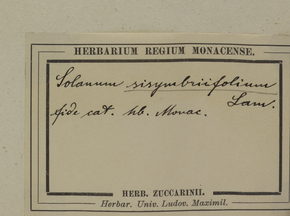 HERBARIUM REGIUM MONACENSE.
Solanum sisymbriifolium
Lam.
fide cat. hb. Monac.
HERB. ZUCCARINII.
Herbar. Univ. Ludov. Maximil.